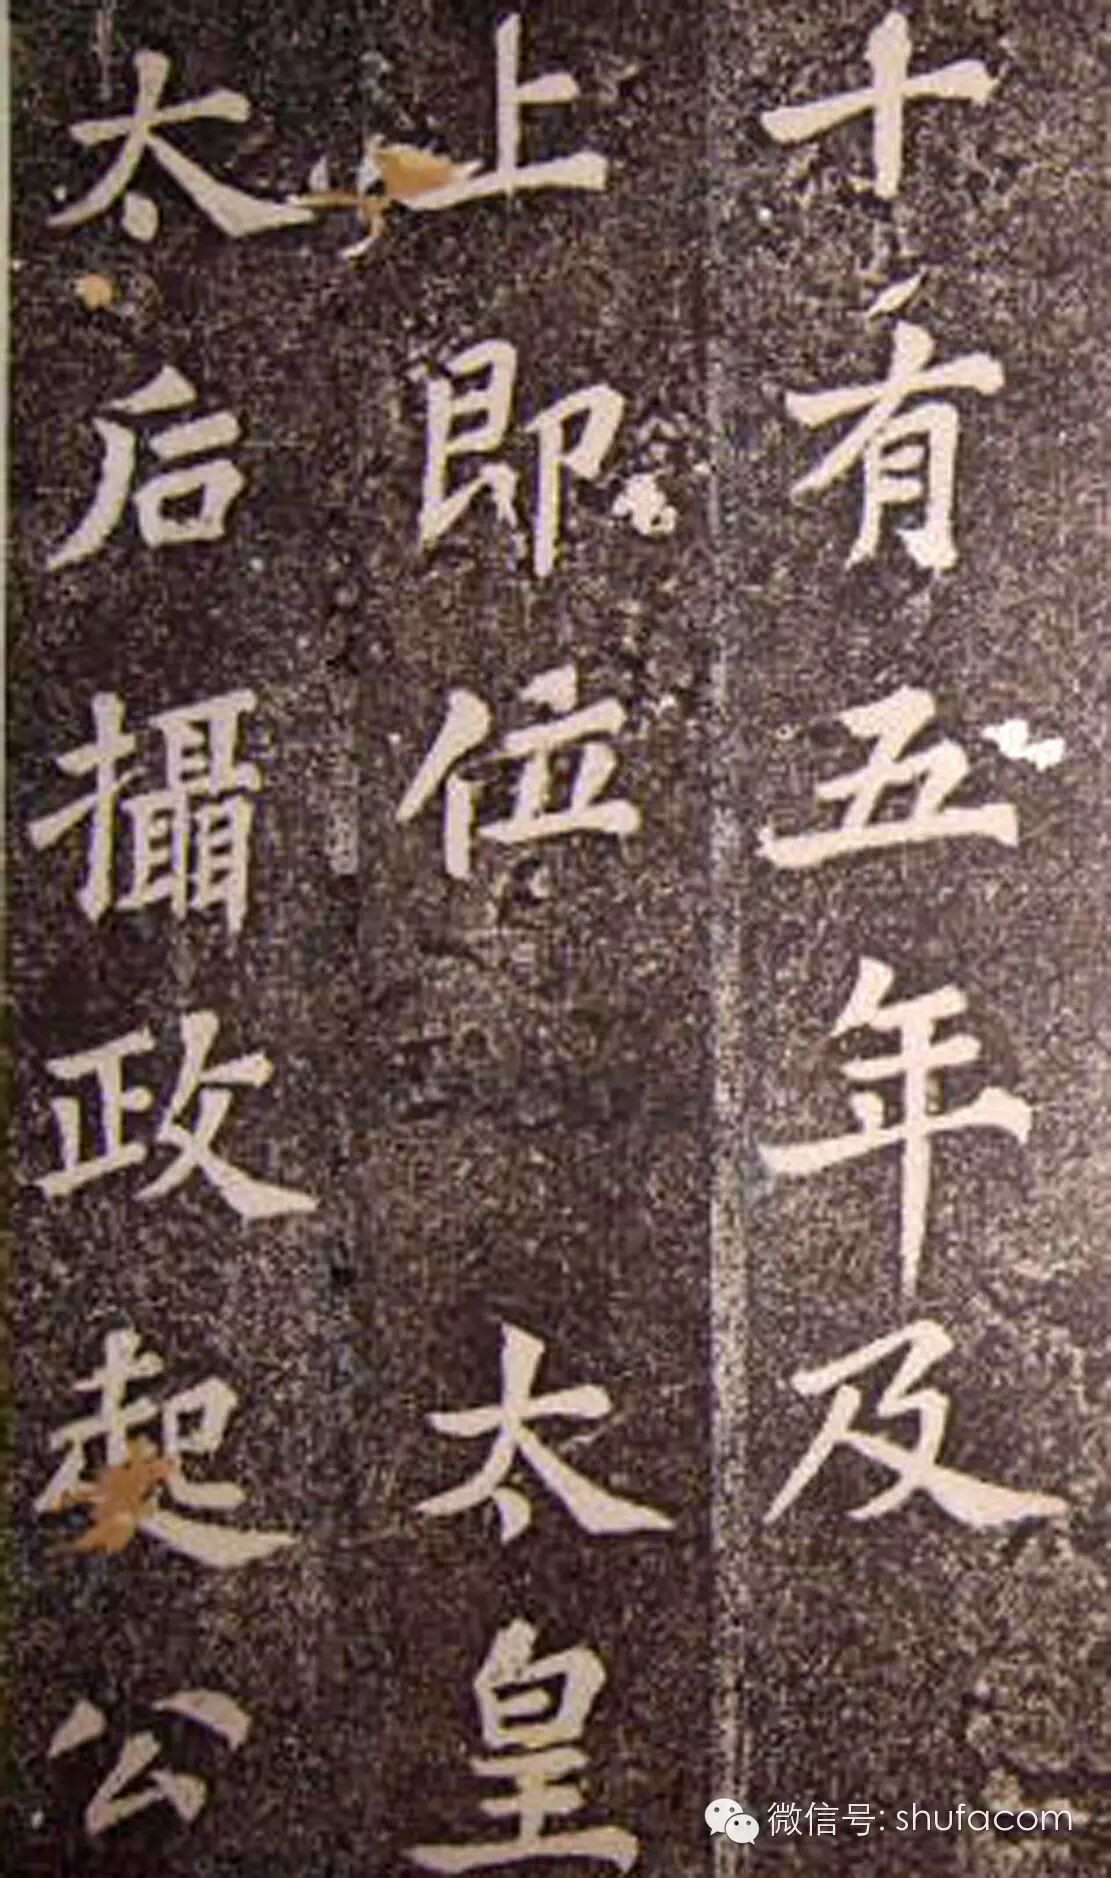 十有五年及
上即位太皇
太后攝政起公
微信号: shufacom